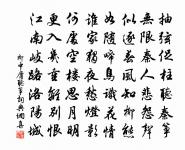 抽弦促柱聽秦箏
無限秦人悲怨聲
似逐春風知柳態
如隨啼鳥識花情
誰家獨夜愁燈影
何處空樓思月明
更入幾重離別恨
江南岐路洛陽城
柳中庸聽箏詞典網書